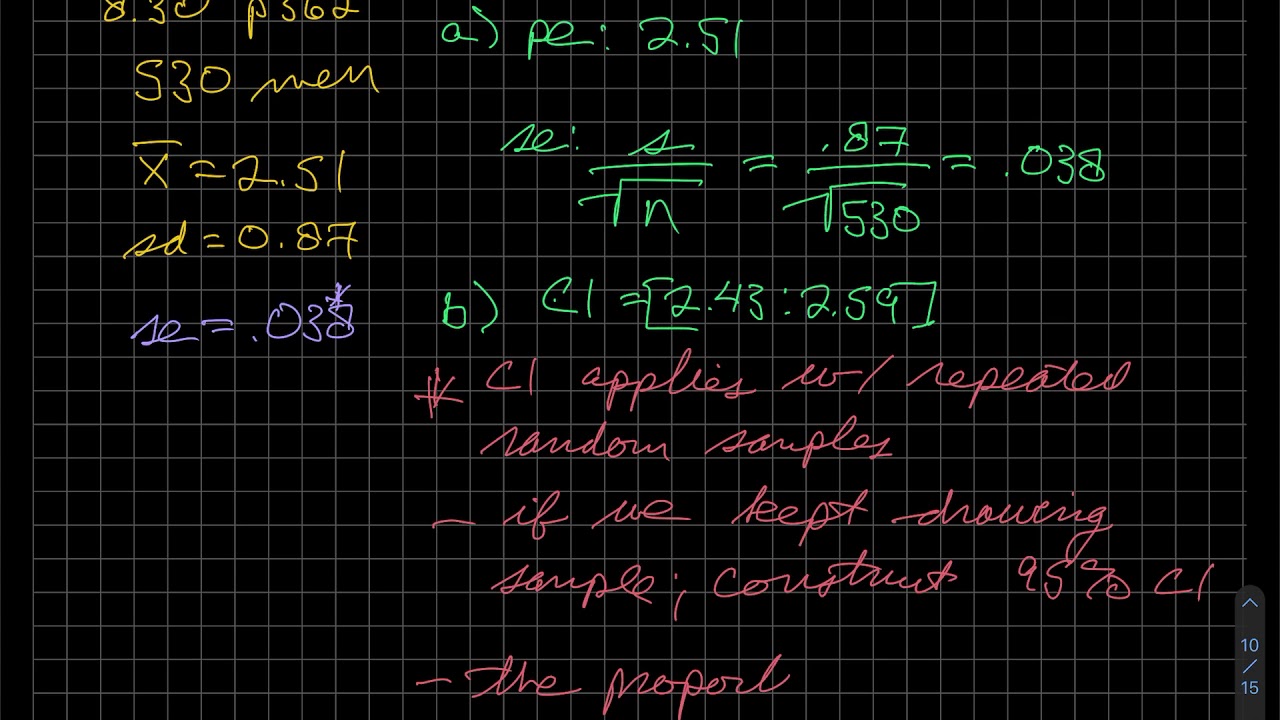 8.30 p362
530 men
x̄ = 2.51
sd = 0.87
se = .038*
a) pe: 2.51
se: s/√n = .87/√530 = .038
b) CI = [2.43 : 2.59]
* CI applies w/ repeated
random samples
- if we kept drawing
sample; construct 95% CI
- the proport
10
/
15